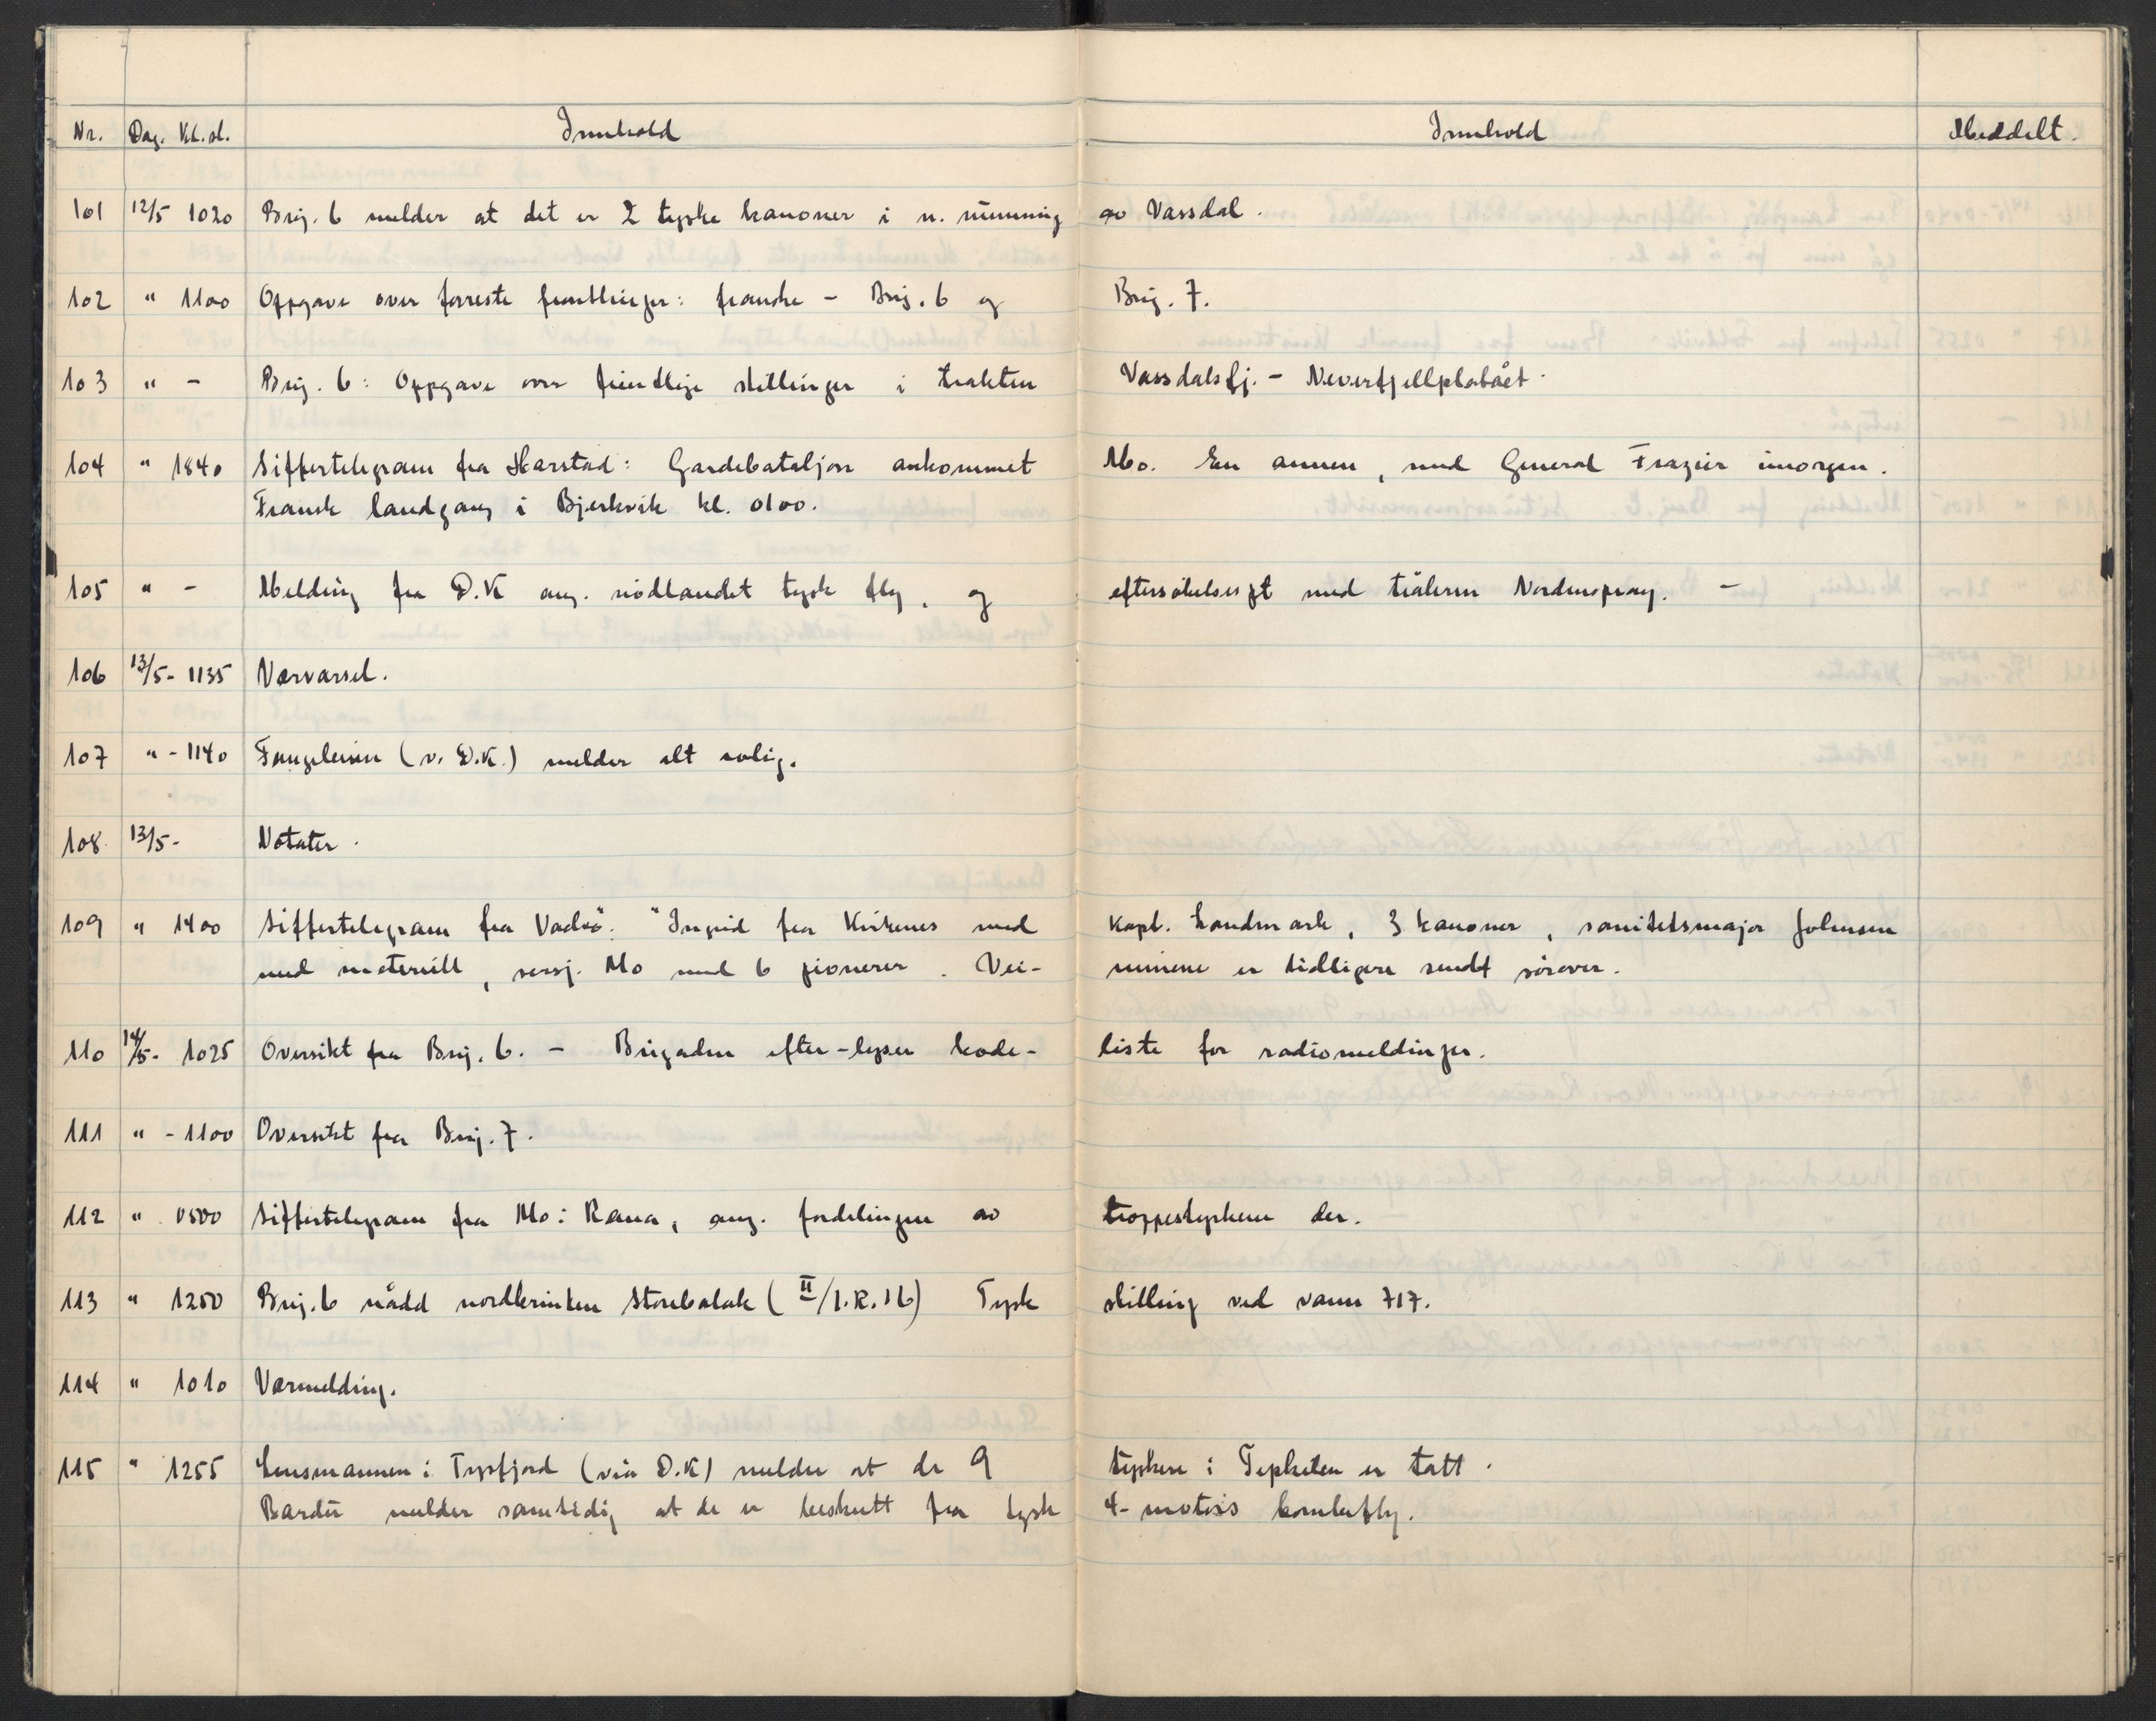 Nr. Dag. Kl.sl. Innhold Innhold Meddelt.
101 12/5 1020 Brig. 6 melder at det er 2 tyske kanoner i n. munning av Vassdal.
102 " 1100 Oppgave over forreste frontlinjer: franske - Brig. 6 og Brig. 7.
103 " - Brig. 6: Oppgave over fiendtlige stillinger i trakten Vassdalsfj. - Neverfjellplatået.
104 " 1840 Siffertelegram fra Harstad: Gardebataljon ankommet Mo. En annen, med General Frazier imorgen.
Fransk landgang i Bjerkvik kl. 0100.
105 " - Melding fra D.K ang. nödlandet tysk fly, og eftersökelse med tråleren Nordenspray. -
106 13/5- 1135 Værvarsel.
107 " - 1140 Fangeleiren (v. D.K.) melder alt rolig.
108 13/5- Notater.
109 " 1400 Siffertelegram fra Vadsö: "Ingrid fra Kirkenes med kapt. Landmark, 3 kanoner, sanitetsmajor Johnsen
med materiell, sersj. Mo med 6 pionerer. Vei- minene er tidligere sendt sörover.
110 14/5- 1025 Oversikt fra Brig. 6. - Brigaden efter-lyser kode- liste for radiomeldinger.
111 " - 1100 Oversikt fra Brig. 7.
112 " 0500 Siffertelegram fra Mo i Rana, ang. fordelingen av troppestyrkene der.
113 " 1250 Brig. 6 nådd nordkrinken Storebalak (II/I.R.16) Tysk stilling ved vann 717.
114 " 1010 Værmelding.
115 " 1255 Lensmannen i Tysfjord (via D.K) melder at de 9 tyskere i Tepkilen er tatt.
Bardu melder samtidig at de er beskutt fra tysk 4-motors bombefly.